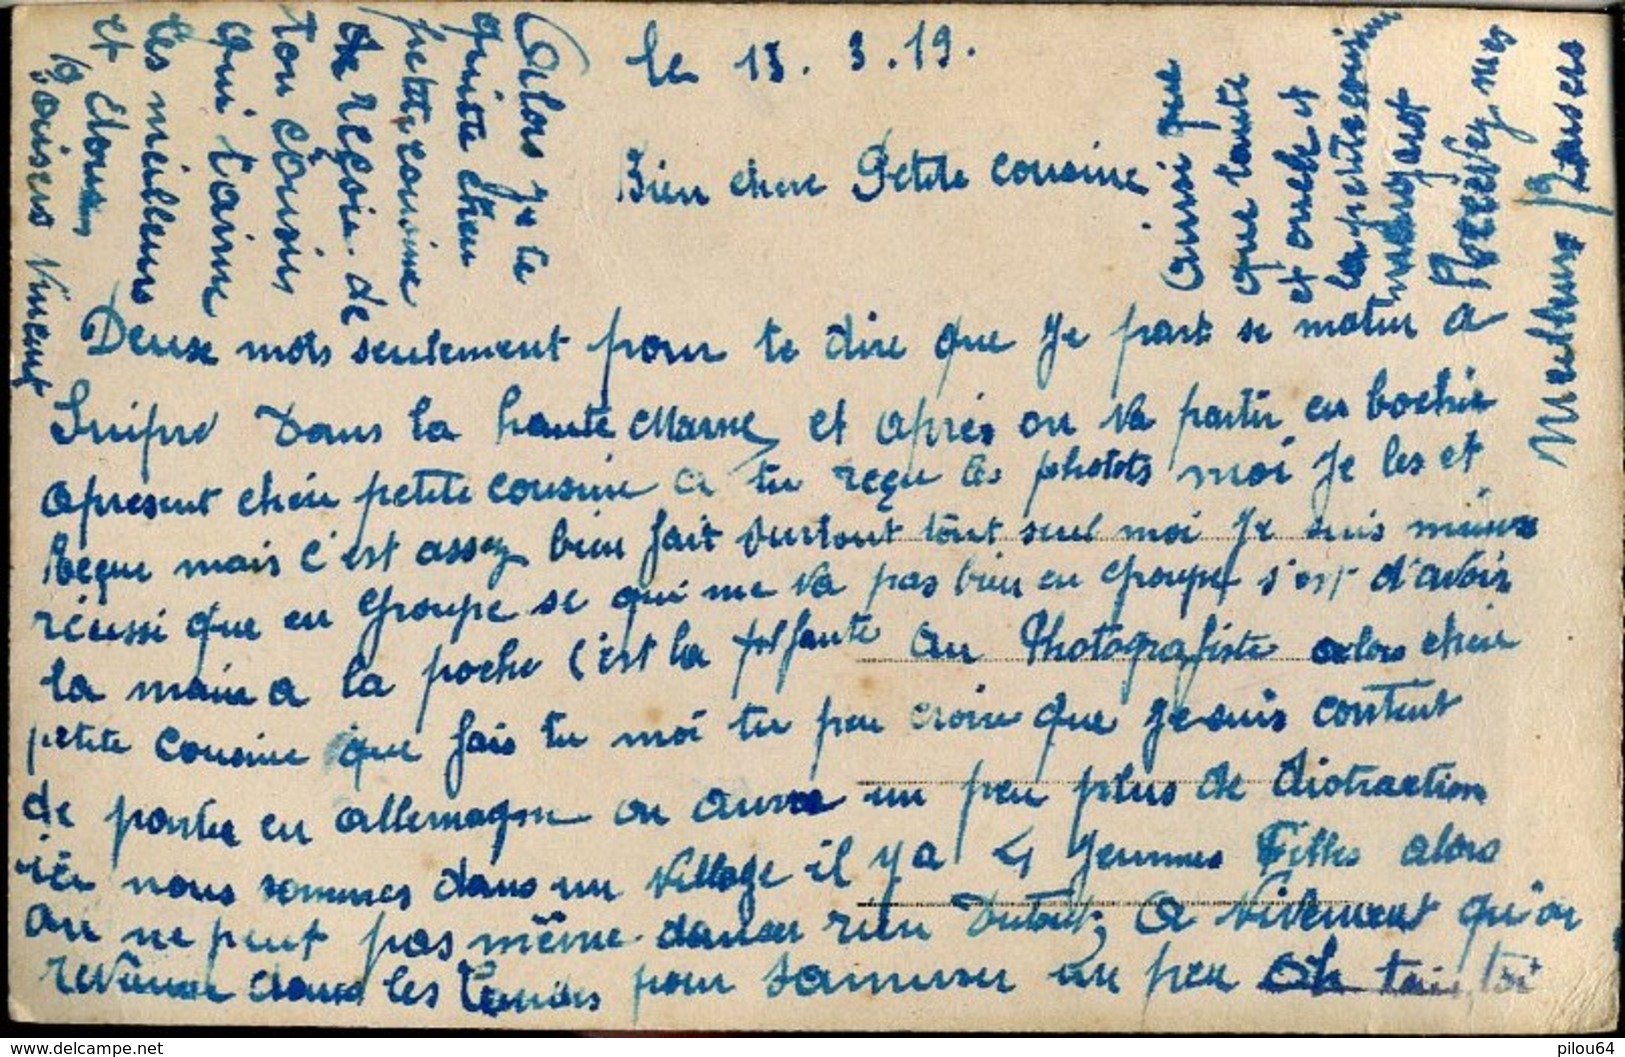 le 15.3.19.
Bien chère Petite cousine
Deuse mots seulement pour te dire que je part se matin a
Dans la haute Marne et après on va partir en bochie
apresent chère petite cousine a tu reçu les photots moi je les et
Reçue mais c'est assez bien fait surtout tout seul moi je suis mieux
réussi que en Groupe se qui me va pas bien en Groupe s'est d'avoir
la main a la poche c'est la faute au Photografiste alors chère
petite cousine que fais tu moi tu peu croire que je suis content
de partir en allemagne on aura un peu plus de distraction
ici nous sommes dans un village il y a 4 jeunnes Filles alors
on ne peut pas même danser rien Dutout, a vivement qu'on
revienne dans les pour samuser un peu
Alors je te
quiste chère
petite cousine
de reçois de
ton cousin
qui t'aime
les meilleurs
et Doux
Baisers Vincent
Ainsi que
que tante
et oncle et
la petite cousine
margarot
Recevez mes
Meilleurs Baisers
delcampe.net
pilou64